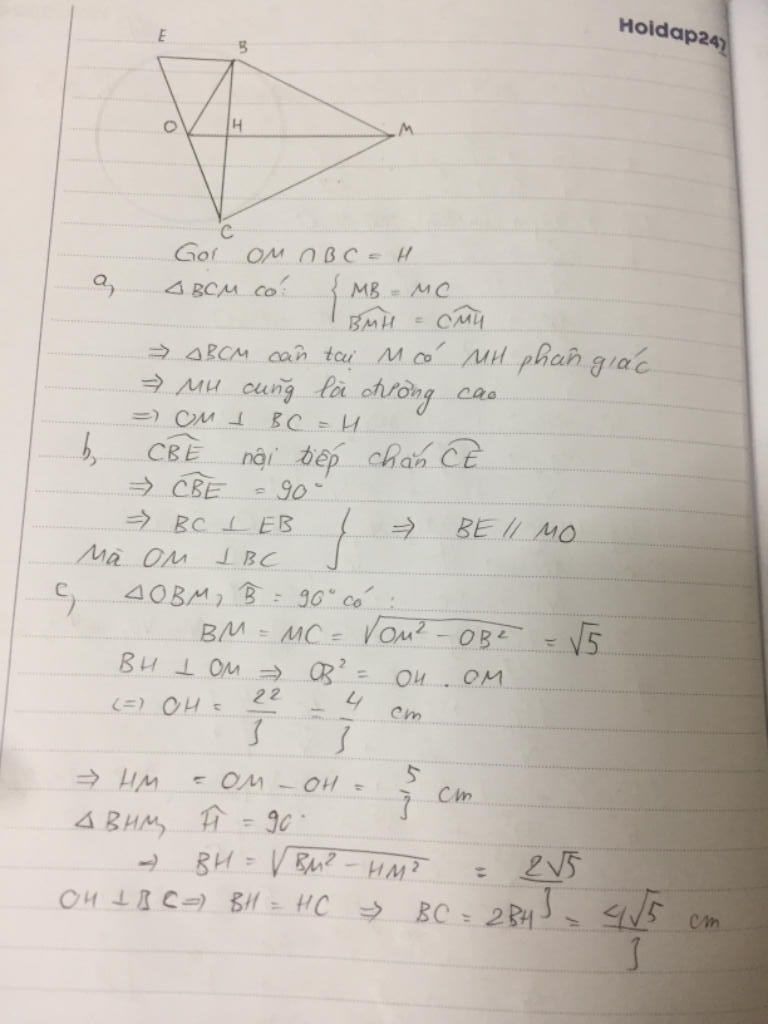 Hoidap247
E
B
O
H
M
C
Gọi OM ∩ BC = H
a, △BCM có: { MB = MC
BMH = CMH
⇒ △BCM cân tại M có MH phân giác
⇒ MH cũng là đường cao
⇒ OM ⊥ BC = H
b, CBE nội tiếp chắn CE
⇒ CBE = 90°
⇒ BC ⊥ EB } ⇒ BE // MO
Mà OM ⊥ BC
c, △OBM, B = 90° có:
BM = MC = √(OM² - OB²) = √5
BH ⊥ OM ⇒ OB² = OH . OM
(=) OH = 2²/3 = 4/3 cm
⇒ HM = OM - OH = 5/3 cm
△BHM, H = 90°
⇒ BH = √(BM² - HM²) = 2√5/3
OH ⊥ BC ⇒ BH = HC ⇒ BC = 2BH = 4√5/3 cm